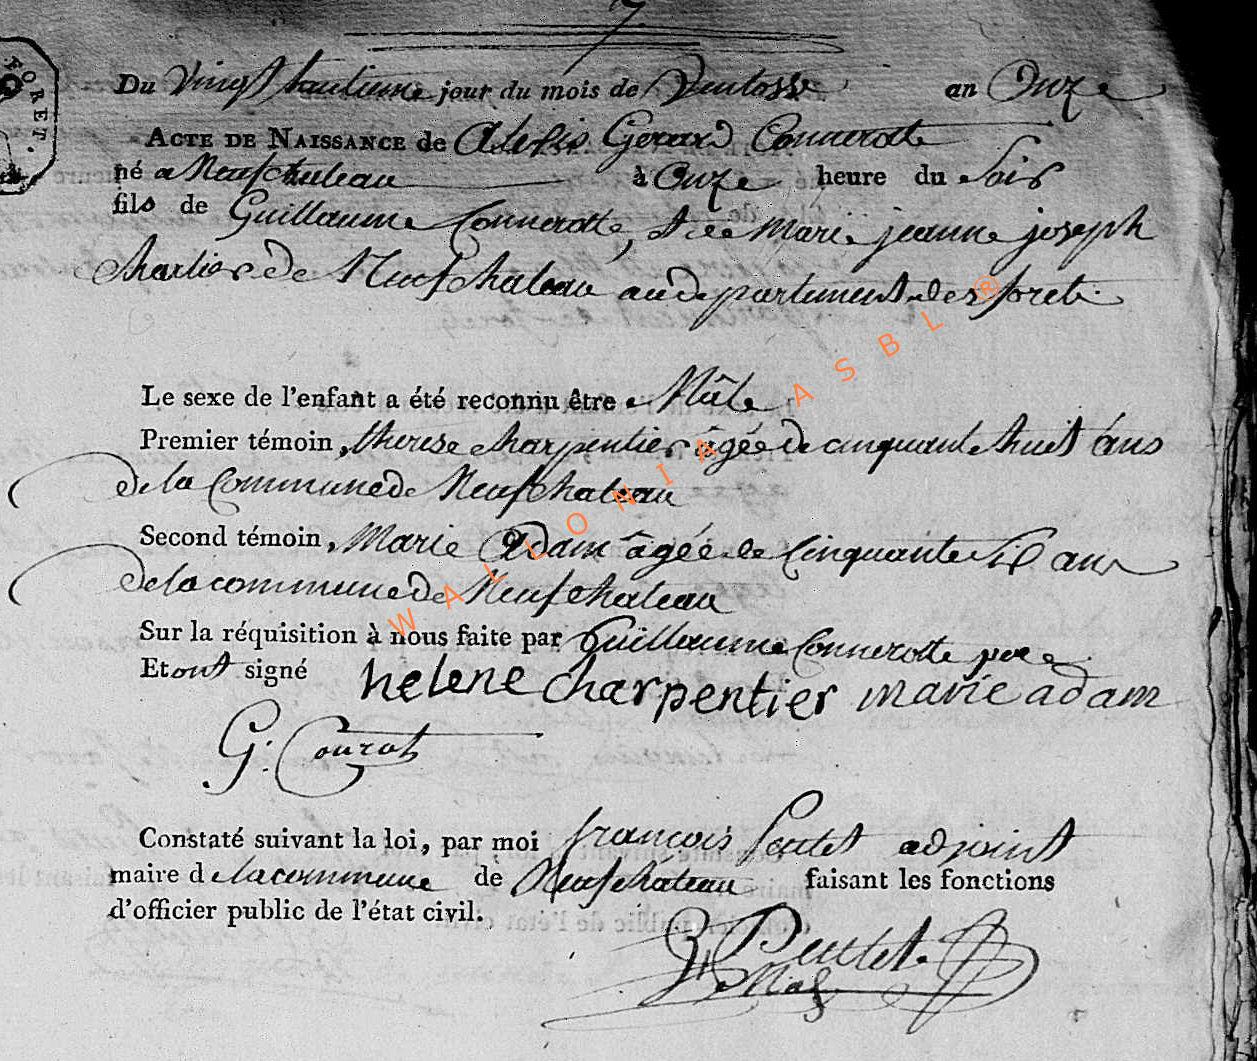 7
FORET.
Du Vingt huitieme jour du mois de Ventosse an Onze
ACTE DE NAISSANCE de Alexis Gerard Connerotte
né a Neufchateau à Onze heure du Soir
fils de Guillaume Connerotte, & de Marie jeanne joseph
charlier de Neufchateau au departement des foret
Le sexe de l'enfant a été reconnu être Mâle
Premier témoin, therese charpentier âgée de cinquante huit ans
de la Commune de Neufchateau
Second témoin, Marie Adam âgée de Cinquante Six ans
de la commune de Neufchateau
Sur la réquisition à nous faite par Guillaume Connerotte pere
Et ont signé helene charpentier marie adam
G. Conrot
Constaté suivant la loi, par moi françois Poulet adjoint
maire de la commune de Neufchateau faisant les fonctions
d'officier public de l'état civil.
WALLONIA ASBL ®